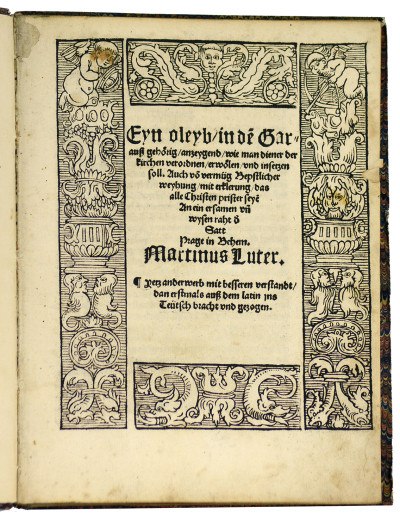 Eyn oleyb/in dē Gar-
auß gehörig/anzeygend/wie man diener der
kirchen verordnen/erwölen/vnd insetzen
soll. Auch vō vermüg Bepstlicher
weyhung/mit erklerung/das
alle Christen prister seyē
An ein ersamen vñ
wysen raht d̄
Satt
Prage in Behem.
Martinus Luter.
¶ Yetz anderwerb mit besseren verstandt/
dan erstmals auß dem latin jns
Teütsch bracht vnd gezogen.